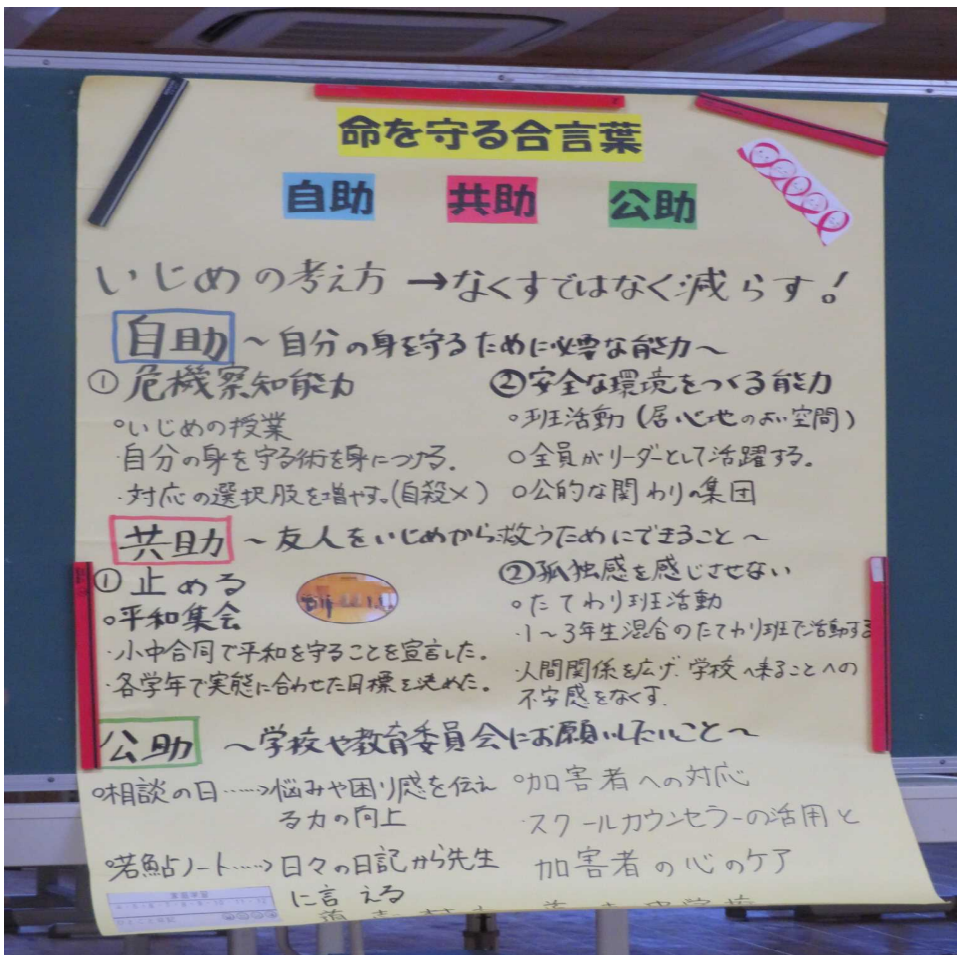 命を守る合言葉
自助 共助 公助
いじめの考え方 →なくすではなく減らす!
自助 ~自分の身を守るために必要な能力~
①危機察知能力
。いじめの授業
・自分の身を守る術を身につける.
・対応の選択肢を増やす。(自殺×)
②安全な環境をつくる能力
○班活動(居心地のよい空間)
○全員がリーダーとして活躍する.
○公的な関わりの集団
共助 ~友人をいじめから救うためにできること~
①止める
○平和集会
・小中合同で平和を守ることを宣言した.
・各学年で実態に合わせた目標を決めた。
②孤独感を感じさせない
○たてわり班活動
・1~3年生混合のたてわり班で活動する
・人間関係を広げ.学校へ来ることへの
不安感をなくす.
公助 ~学校や教育委員会にお願いしたいこと~
○相談の日……→悩みや困り感を伝え
る力の向上
○若鮎ノート……→日々の日記から先生
に言える
○加害者への対応
・スクールカウンセラーの活用と
加害者の心のケア